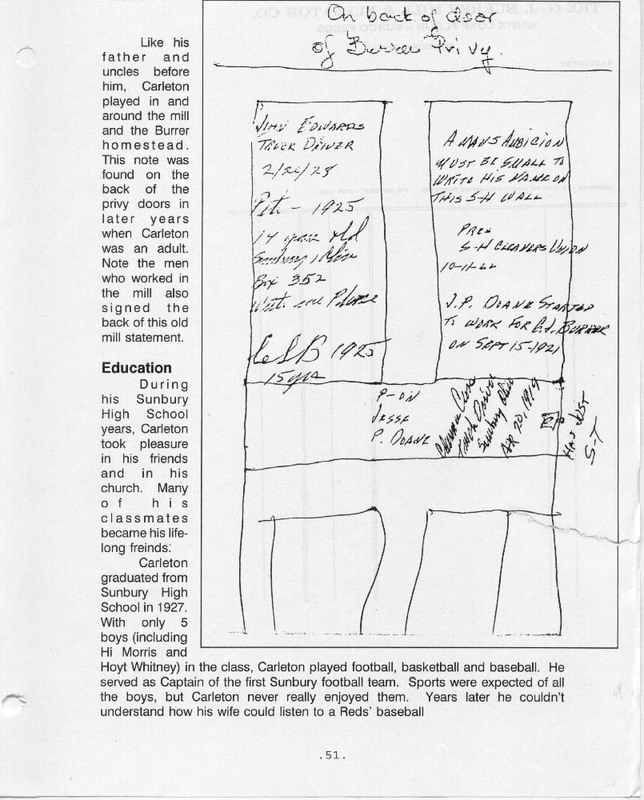 On back of door
of Burrer Privy.
Like his
father and
uncles before
him, Carleton
played in and
around the mill
and the Burrer
homestead.
This note was
found on the
back of the
privy doors in
later years
when Carleton
was an adult.
Note the men
who worked in
the mill also
signed the
back of this old
mill statement.
JIMY EDWARDS
TRUCK DRIVER
2/26/28
Pet - 1925
14 years old
Sunbury Ohio
Box 352
Write me Please
CSB 1925
15 yrs
A MANS AUBICION
MUST BE SMALL TO
WRITE HIS NAME ON
THIS S-H WALL
PRES
S-H CLEANERS UNION
10-11-22
J.P. DOANE STARTED
TO WORK FOR G.J. BURRER
ON SEPT 15-1921
P-ON
JESSE
P. DOANE
Truck Driver
Sunbury Ohio
APR 20, 1919
HAS JUST
S-T
Education
During
his Sunbury
High School
years, Carleton
took pleasure
in his friends
and in his
church. Many
of his
classmates
became his life-
long freinds.
Carleton
graduated from
Sunbury High
School in 1927.
With only 5
boys (including
Hi Morris and
Hoyt Whitney) in the class, Carleton played football, basketball and baseball. He
served as Captain of the first Sunbury football team. Sports were expected of all
the boys, but Carleton never really enjoyed them. Years later he couldn't
understand how his wife could listen to a Reds' baseball
.51.